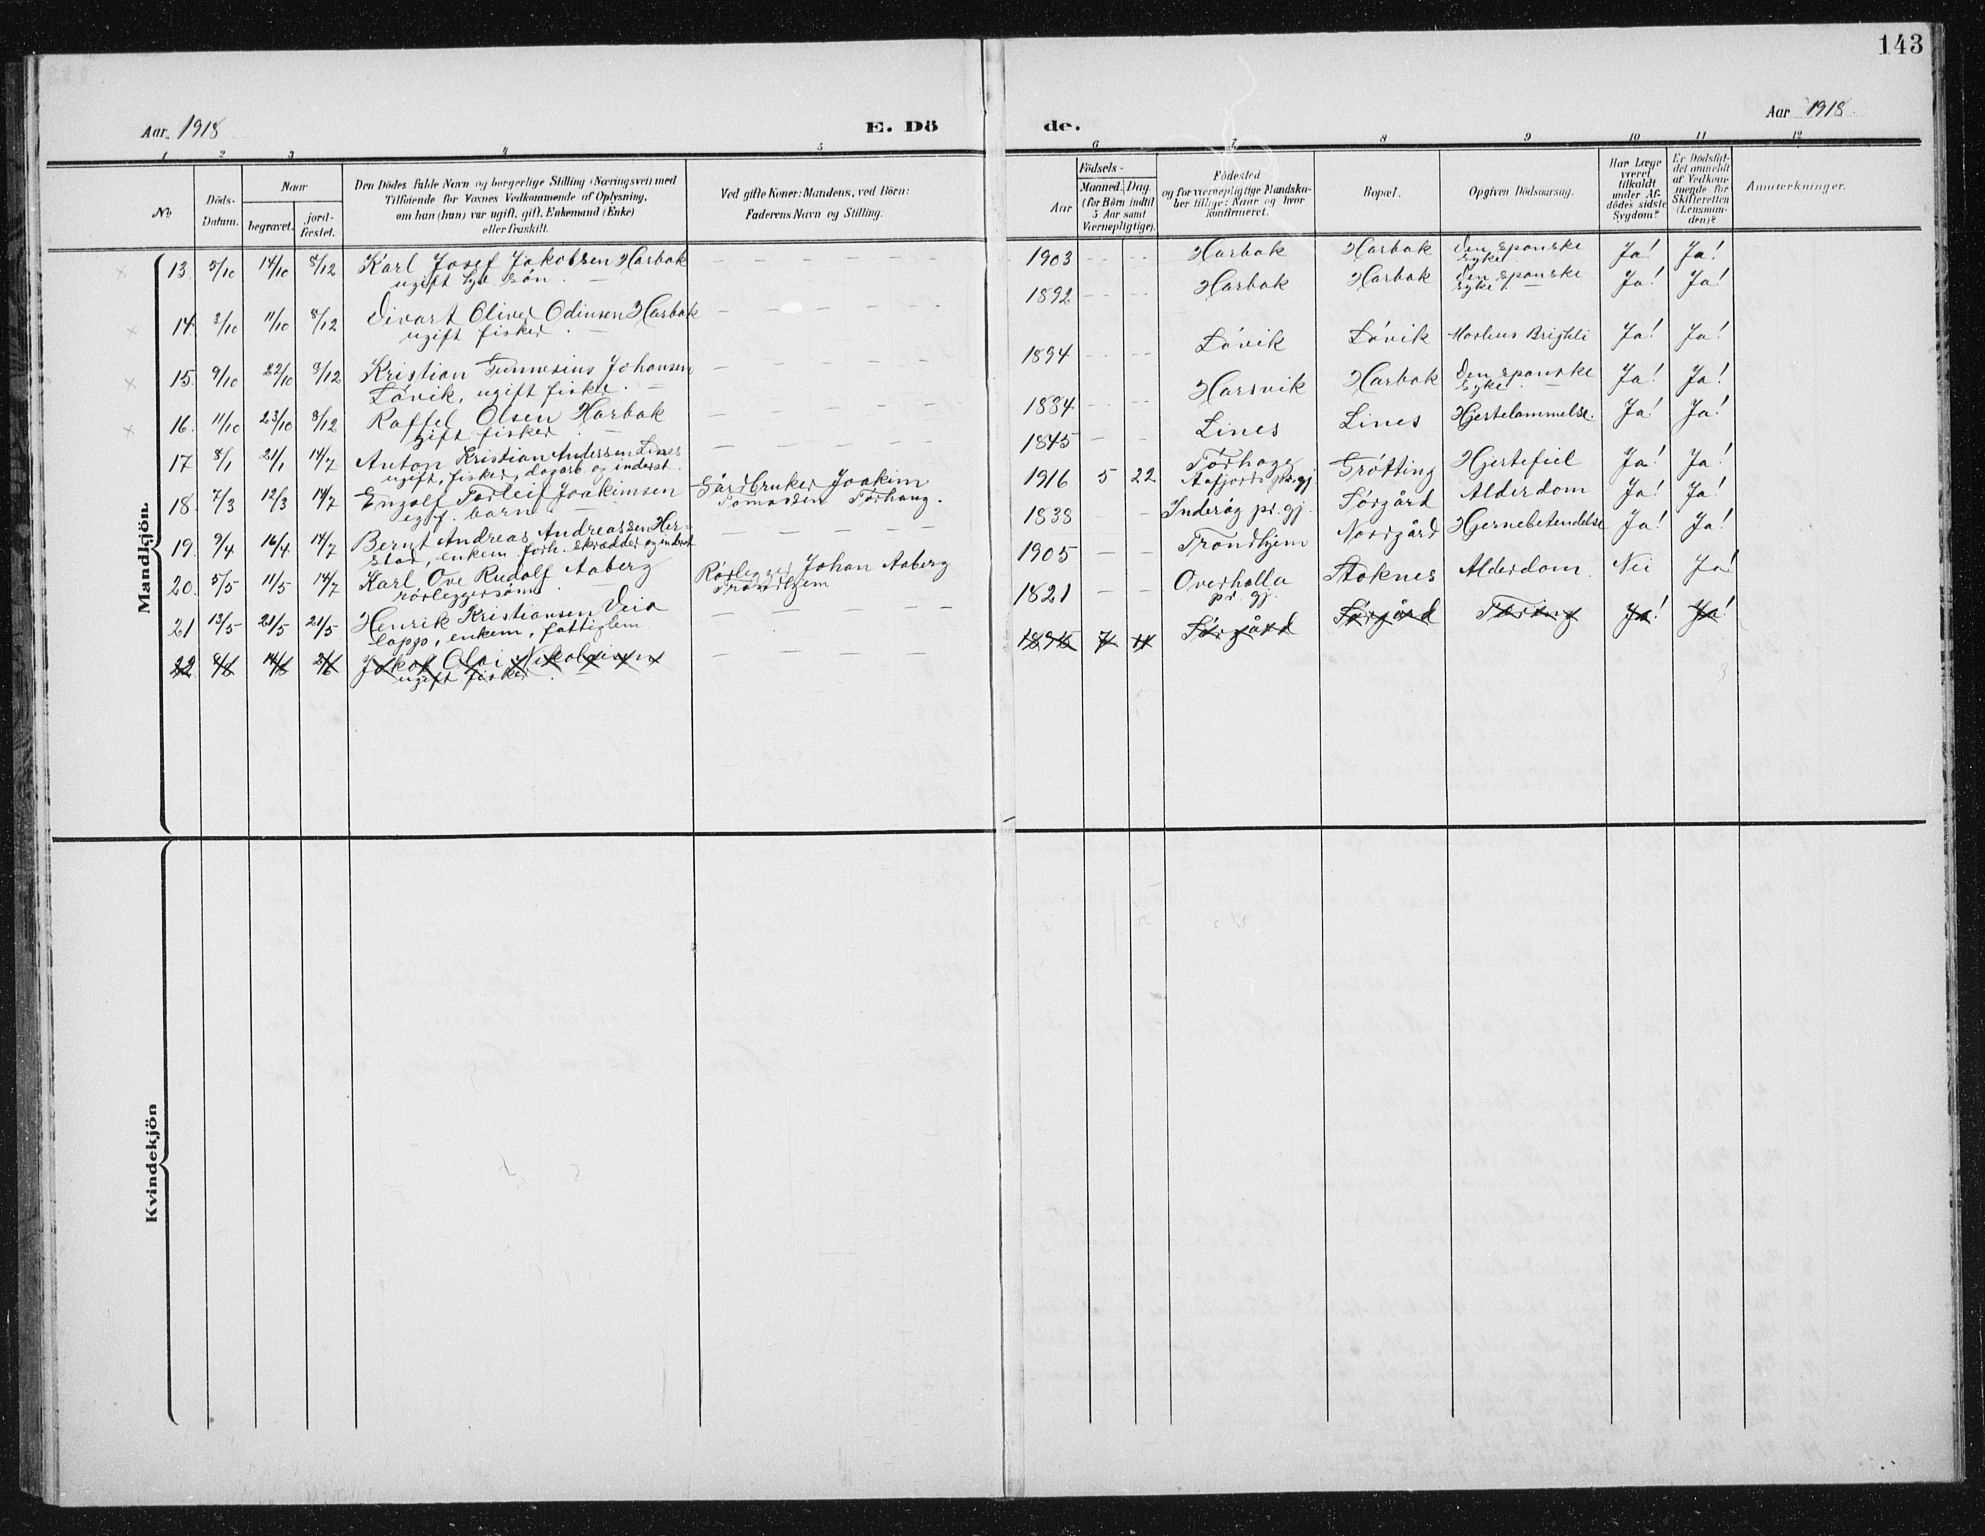 143
Aar 1918
E. Dö
de.
Aar 1918.
1 2 3 4 5 6 7 8 9 10 11 12
No
Döds-
Datum.
Naar
begravet.
jord-
fæstet.
Den Dödes fulde Navn og borgerlige Stilling (Næringsvei) med
Tilföiende for Voxnes Vedkommende af Oplysning,
om han (hun) var ugift, gift, Enkemand (Enke)
eller fraskilt.
Ved gifte Koner: Mandens, ved Börn:
Faderens Navn og Stilling.
Födsels-
Aar
Maaned. Dag.
(for Börn indtil
5 Aar samt
Værnepligtige).
Födested
og for værnepligtige Mandska-
ber tillige: Naar og hvor
konfirmeret.
Bopæl.
Opgiven Dödsaarsag.
Har Læge
været
tilkaldt
under Af-
dödes sidste
Sygdom?
Er Dödsfal-
det anmeldt
af Vedkom-
mende for
Skifteretten
(Lensman-
den)?
Anmerkninger.
Mandkjön.
13 5/10 14/10 8/12 Karl Josef Jakobsen Harbak — 1903 Harbak Harbak Den spanske Ja! Ja!
ugift søn. syke
14 2/10 11/10 8/12 Divart Oliver Odinsen Harbak — 1892 Harbak Harbak Den spanske Ja! Ja!
ugift fisker. syke.
15. 9/10 22/10 8/12 Kristian Johansen — 1894 Løvik Løvik Morbus Brighti Ja! Ja!
Løvik, ugift fisker.
16. 11/10 23/10 8/12 Raffel Olsen Harbak — 1884 Harsvik Harbak Den spanske Ja! Ja!
gift fisker syke.
17 8/1 21/1 14/7 Anton Kristian Andersen Lines — 1845 Lines Lines Hjertelammelse. Ja! Ja!
ugift, fisker, dagarb. og inderst.
18. 7/3 12/3 14/7 Engolf Torleif Joakimsen Gårdbruker Joakim 1916 5 22 Tørhoge Grøtting Hjertefeil Ja! Ja!
egtf. barn Tomassen Tørhaug. Aafjords pr.gj.
19. 9/4 16/4 14/7 Bernt Andreas Andreassen Her- — 1838 Inderøy pr.gj. Sørgård Alderdom Ja! Ja!
stad, enkem. forh. skrædder og inderst
20. 5/5 11/5 14/7 Karl Ove Rudolf Aaberg Rørlegger Johan Aaberg 1905 Trondhjem Nordgård Hjernebetendelse Ja! Ja!
rørleggersønn Trondhjem
21 13/5 21/5 21/5 Henrik Kristiansen Veia — 1821 Overhalla Stoknes Alderdom. Nei Ja!
Lapp, enkem, fattiglem pr. gj.
22 Jakob Olai Nikolaisen — 7 11 Sørgård Sørgård Tæring Ja! Ja!
ugift fisker.
Kvindekjön